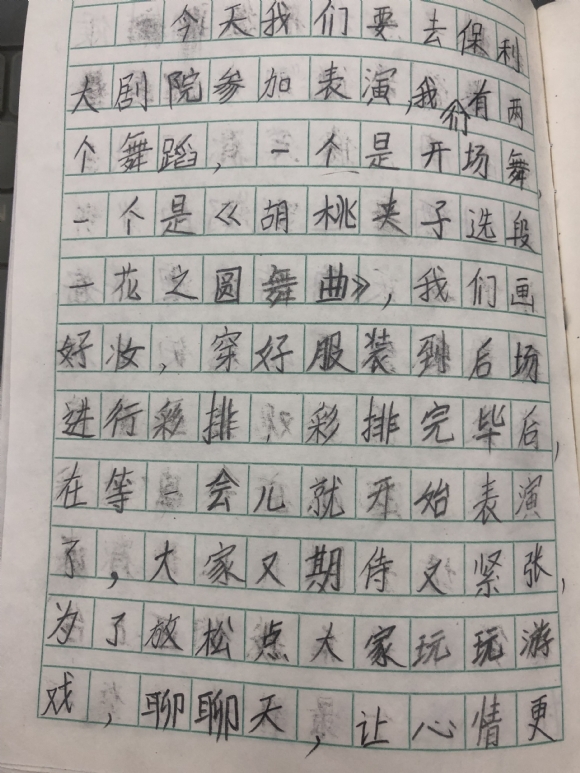 今天我们要去保利
大剧院参加表演,我们有两
个舞蹈,一个是开场舞,
一个是《胡桃夹子选段
一花之圆舞曲》,我们画
好妆,穿好服装到后场
进行彩排,彩排完毕后,
在等一会儿就开始表演
了,大家又期待又紧张,
为了放松点大家玩玩游
戏,聊聊天,让心情更